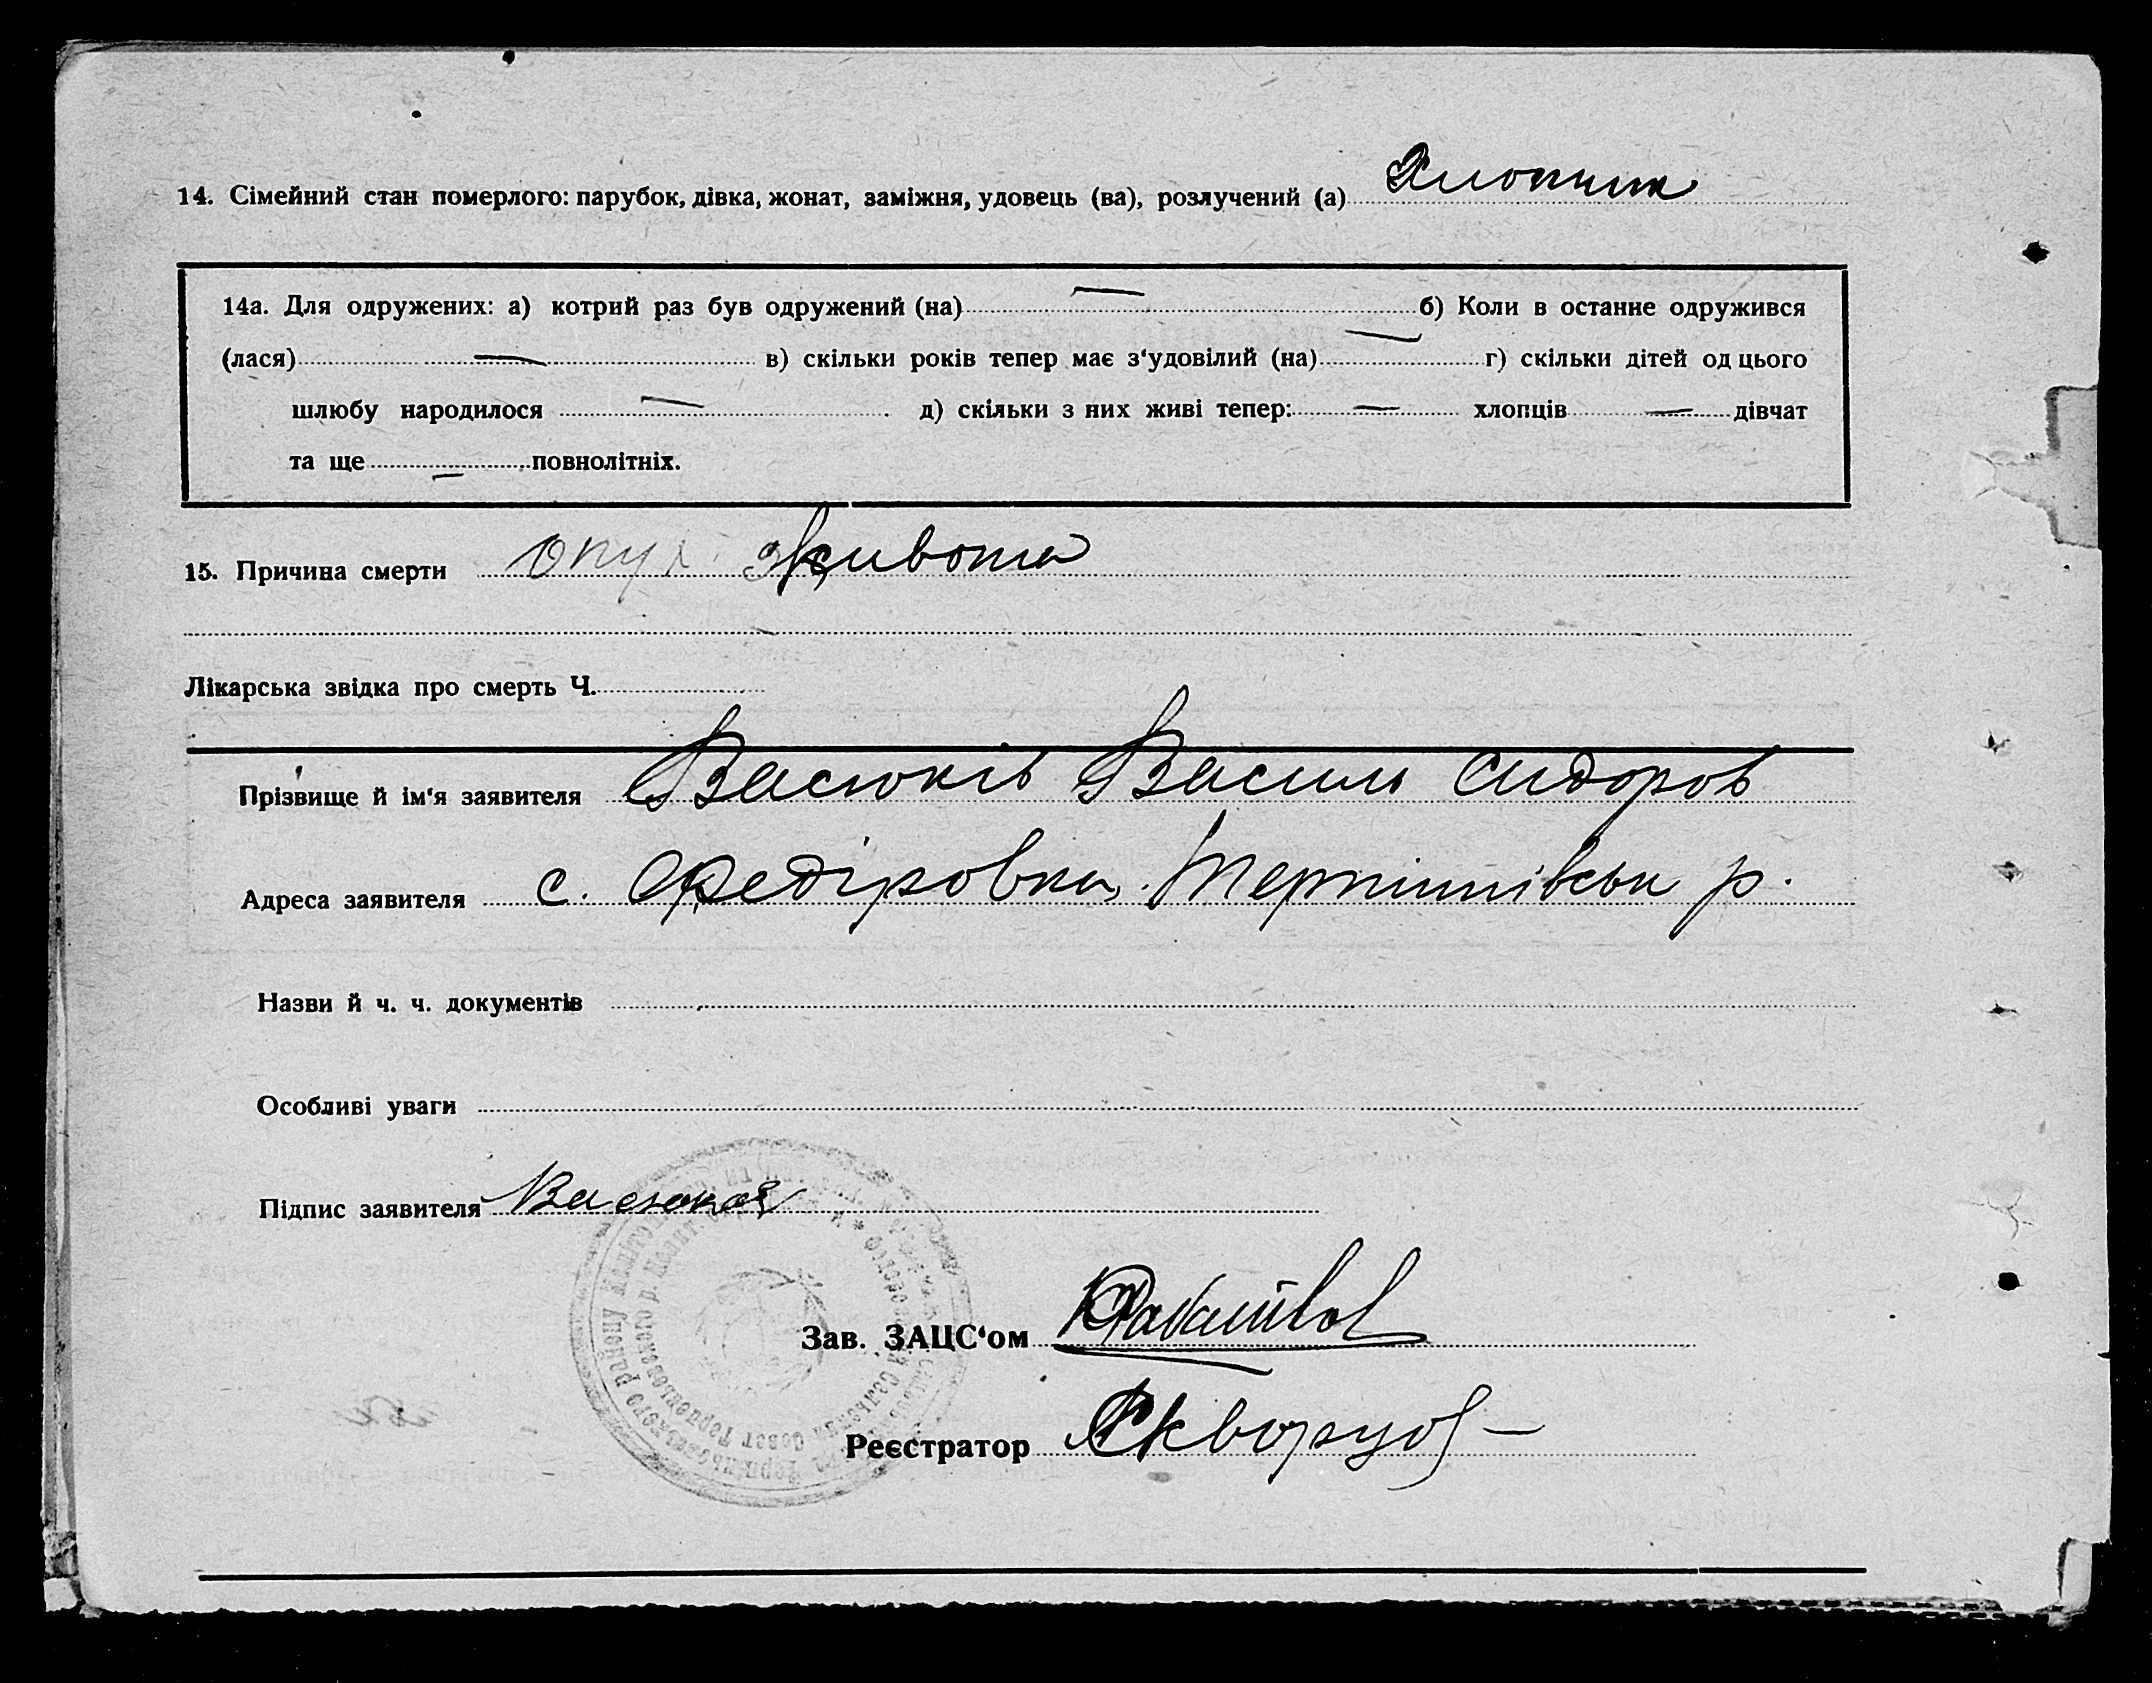 14. Сімейний стан померлого: парубок, дівка, жонат, заміжня, удовець (ва), розлучений (а) Хлопчик
14а. Для одружених: а) котрий раз був одружений (на) — б) Коли в останне одружився
(лася) — в) скільки років тепер має з‘удовілий (на) — г) скільки дітей од цього
шлюбу народилося — д) скільки з них живі тепер: — хлопців — дівчат
та ще — повнолітніх.
15. Причина смерти опух живота
Лікарська звідка про смерть Ч.
Прізвище й ім‘я заявителя Васюків Василь Сидоров
Адреса заявителя с. Федіровка Терпінівськ р.
Назви й ч. ч. документів
Особливі уваги
Підпис заявителя Васюков
Зав. ЗАЦС‘ом
Реєстратор Скворцов